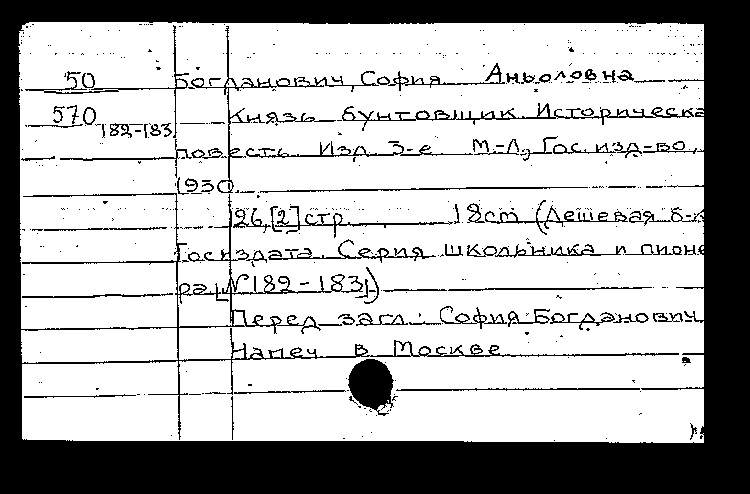 50 Богданович, София Аньоловна
570 182-183 Князь бунтовщик. Историческа
повесть. Изд. 3-е М.-Л., Гос. изд-во,
1930
26, [2] стр. 18cm (Дешевая б-к
Госиздата. Серия школьника и пионе
ра, №182-183)
Перед загл.: София Богданович.
Напеч. в Москве